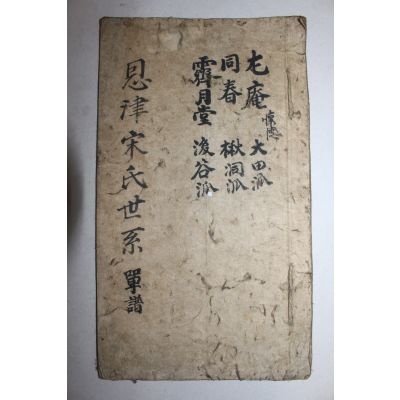 尤庵 大田派
同春 楸洞派
霽月堂 浚谷派
恩津宋氏世系 單譜